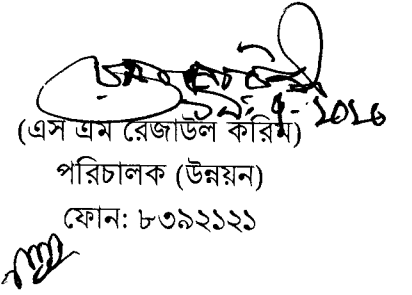 (এস এম রেজাউল করিম)
পরিচালক (উন্নয়ন)
ফোন: ৮৩৯২১২১